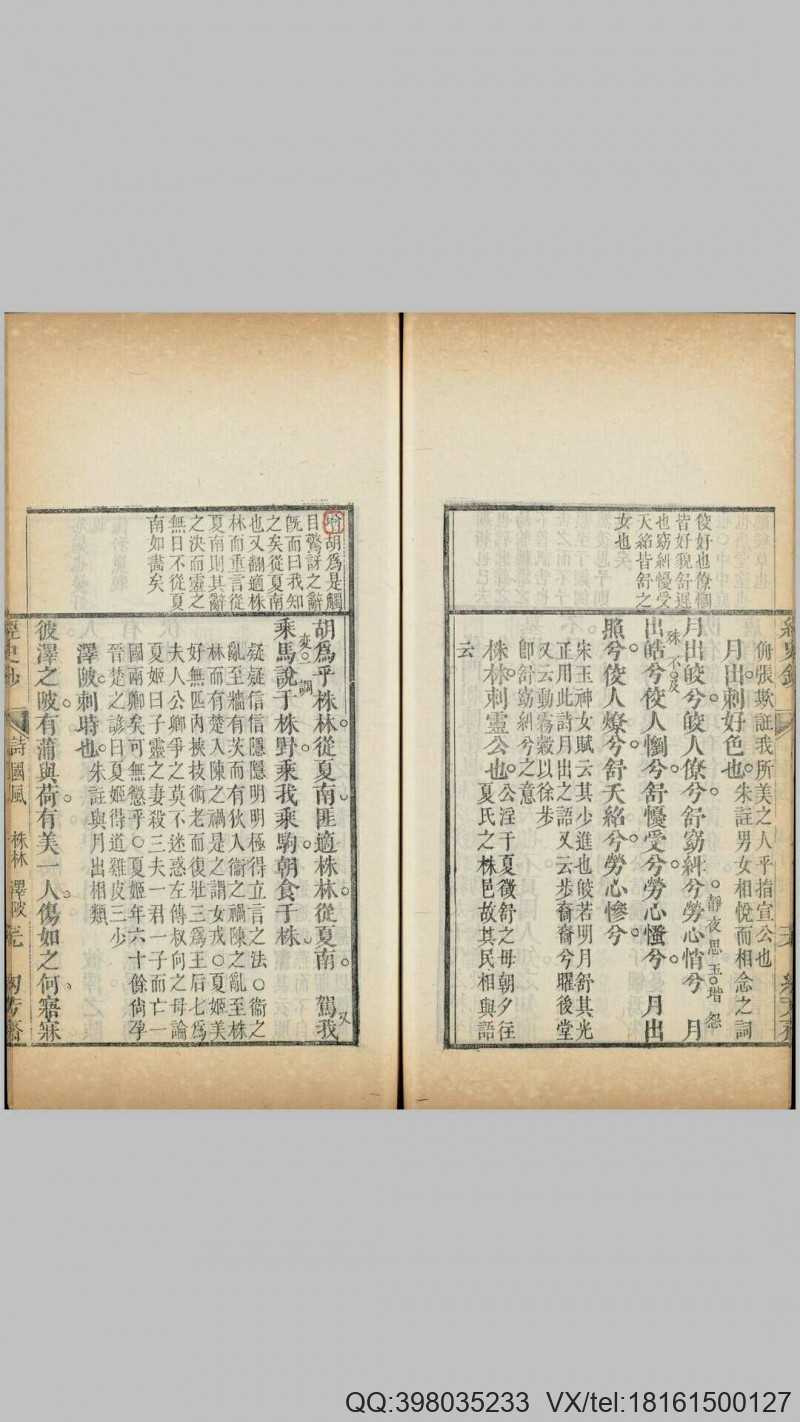 佼好也僚㦖
皆好貌舒遲
也窈糾懮受
夭紹皆舒之
女也
侜張欺誑我所美之人乎指宣公也
月出刺好色也朱註男女相悅而相念之詞
月出皎兮佼人僚兮舒窈糾兮勞心悄兮 月
靜夜思玉階怨
殊不及
出皓兮佼人懰兮舒懮受兮勞心慅兮 月出
照兮佼人燎兮舒夭紹兮勞心慘兮
宋玉神女賦云其少進也皎若明月舒其光
正用此詩月出之語又云步裔裔兮曜後堂
又云動霧縠以徐步
卽舒窈糾兮之意
株林刺靈公也公淫于夏徵舒之母朝夕往
夏氏之株邑故其民相與語
云
胡爲是觸
目驚訝之辭
旣而曰我知
之矣從夏南
也又翻適株
林而重言從
夏南則其辭
之決而靈之
無日不從夏
南如畵矣
胡爲乎株林從夏南匪適株林從夏南 駕我
又
變調
乘馬說于株野乘我乘駒朝食于株
疑疑信信隱隱明明極得立言之法○衞之
亂至牆有茨而有狄人衞之禍陳之亂至株
林而有楚入陳之禍是之謂女戎○夏姬美
好無匹內挾技術老而復壯三爲王后七爲
夫人公卿爭之莫不迷惑左傳叔向之母論
夏姬曰子靈之妻殺三夫一君一子而亡一
國兩卿矣可無懲乎○夏姬年六十餘尙孕
晉楚之諺曰夏姬得道雞皮三少
澤陂刺時也朱註與月出相類
彼澤之陂有蒲與荷有美一人傷如之何寤寐
詩國風 株林 澤陂
QQ:398035233 VX/tel:18161500127